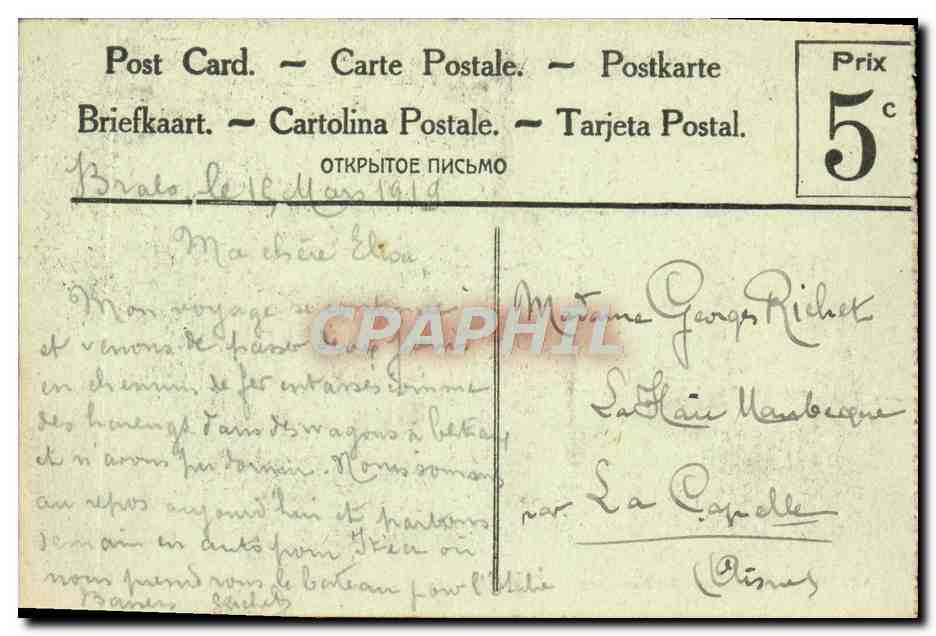 Post Card. ~ Carte Postale. ~ Postkarte
Briefkaart. ~ Cartolina Postale. ~ Tarjeta Postal.
ОТКРЫТОЕ ПИСЬМО
Prix
5c
Bralo, le 15 Mars 1919
Ma chère Elisa,
Mon voyage
et venons de passer
en chemin de fer entassés comme
des harengs dans des wagons à bétail
et n'avons pu dormir. Nous sommes
au repos aujourd'hui et partons
demain en auto pour Itéa où
nous prendrons le bateau pour l'Italie
Baisers
Madame Georges Richet
La Haie Maubecque
par La Capelle
(Aisne)
CPAPHIL